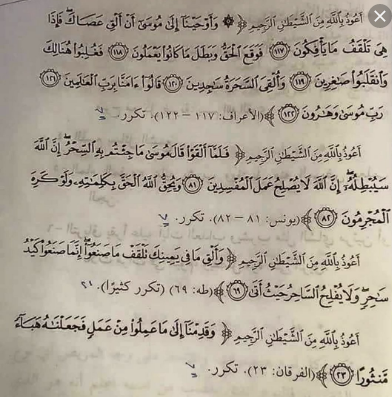 أَعُوذُ بِاللَّهِ مِنَ الشَّيْطَانِ الرَّجِيمِ ﴿۞ وَأَوْحَيْنَا إِلَىٰ مُوسَىٰ أَنْ أَلْقِ عَصَاكَ ۖ فَإِذَا
هِيَ تَلْقَفُ مَا يَأْفِكُونَ ١١٧ فَوَقَعَ الْحَقُّ وَبَطَلَ مَا كَانُوا يَعْمَلُونَ ١١٨ فَغُلِبُوا هُنَالِكَ
وَانقَلَبُوا صَاغِرِينَ ١١٩ وَأُلْقِيَ السَّحَرَةُ سَاجِدِينَ ١٢٠ قَالُوا آمَنَّا بِرَبِّ الْعَالَمِينَ ١٢١
رَبِّ مُوسَىٰ وَهَارُونَ ١٢٢﴾ (الأعراف: ١١٧ – ١٢٢). تكرر. ٧
أَعُوذُ بِاللَّهِ مِنَ الشَّيْطَانِ الرَّجِيمِ ﴿فَلَمَّا أَلْقَوْا قَالَ مُوسَىٰ مَا جِئْتُم بِهِ السِّحْرُ ۖ إِنَّ اللَّهَ
سَيُبْطِلُهُ ۖ إِنَّ اللَّهَ لَا يُصْلِحُ عَمَلَ الْمُفْسِدِينَ ٨١ وَيُحِقُّ اللَّهُ الْحَقَّ بِكَلِمَاتِهِ وَلَوْ كَرِهَ
الْمُجْرِمُونَ ٨٢﴾ (يونس: ٨١ – ٨٢). تكرر. ٧
أَعُوذُ بِاللَّهِ مِنَ الشَّيْطَانِ الرَّجِيمِ ﴿وَأَلْقِ مَا فِي يَمِينِكَ تَلْقَفْ مَا صَنَعُوا ۖ إِنَّمَا صَنَعُوا كَيْدُ
سَاحِرٍ ۖ وَلَا يُفْلِحُ السَّاحِرُ حَيْثُ أَتَىٰ ٦٩﴾ (طه: ٦٩) (تكرر كثيرًا). ٢١
أَعُوذُ بِاللَّهِ مِنَ الشَّيْطَانِ الرَّجِيمِ ﴿وَقَدِمْنَا إِلَىٰ مَا عَمِلُوا مِنْ عَمَلٍ فَجَعَلْنَاهُ هَبَاءً
مَّنثُورًا ٢٣﴾ (الفرقان: ٢٣). تكرر. ٧